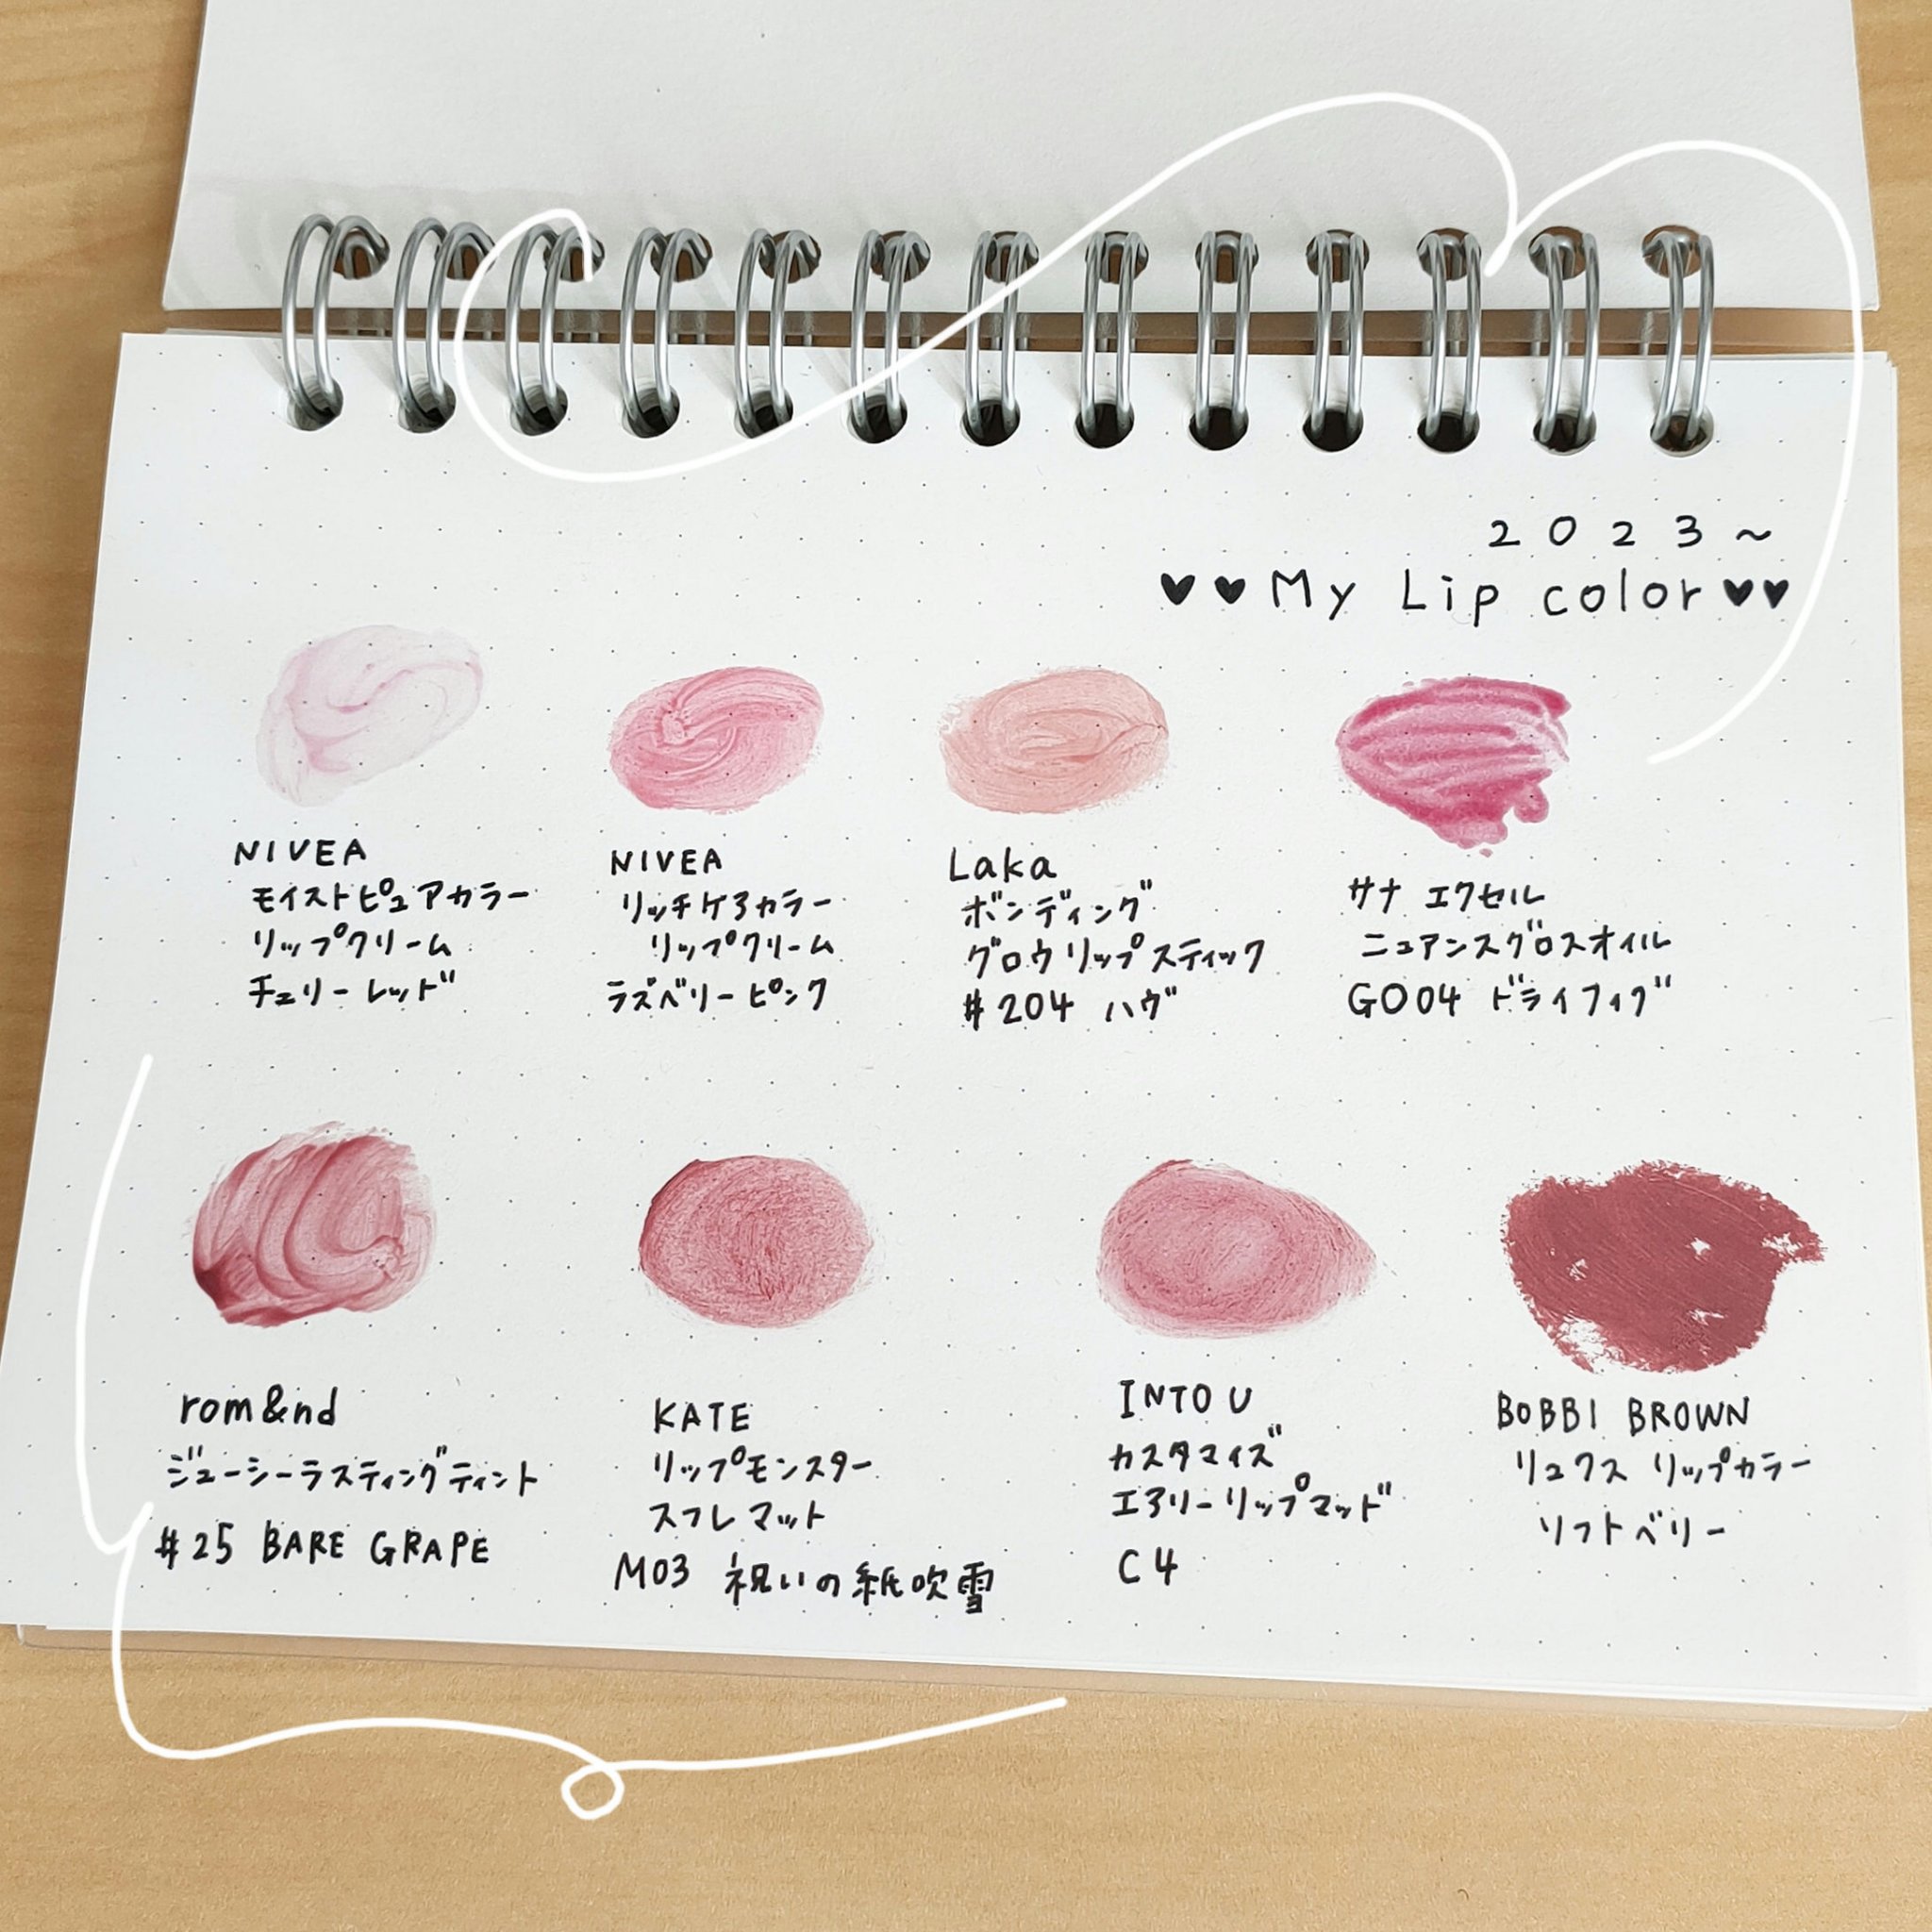 2023~
♥♥My Lip color♥♥
NIVEA
モイストピュアカラー
リップクリーム
チェリーレッド
NIVEA
リッチケアカラー
リップクリーム
ラズベリーピンク
Laka
ボンディング
グロウリップスティック
#204 ハヴ
サナ エクセル
ニュアンスグロスオイル
GO04 ドライフィグ
rom&nd
ジューシーラスティングティント
#25 BARE GRAPE
KATE
リップモンスター
スフレマット
M03 祝いの紙吹雪
INTO U
カスタマイズ
エアリーリップマッド
C4
BOBBI BROWN
リュクス リップカラー
ソフトベリー